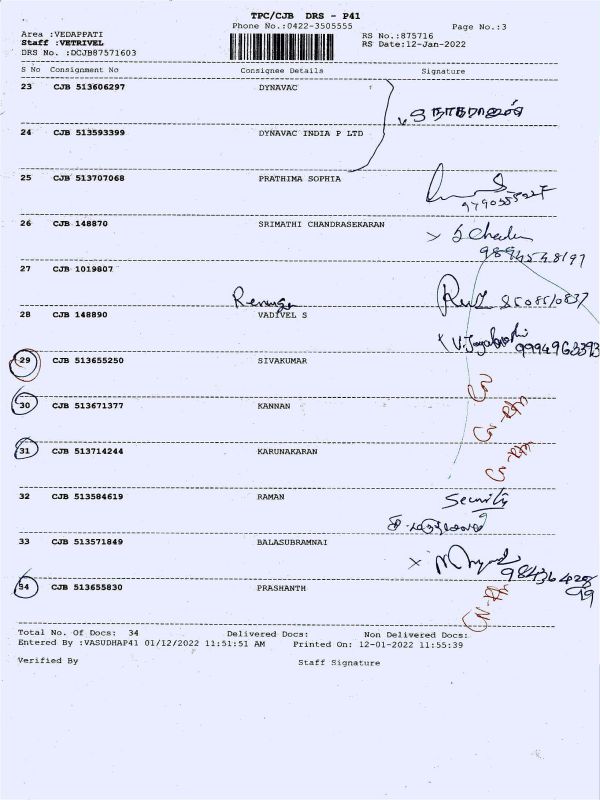 TPC/CJB DRS - P41
Phone No.:0422-3505555
Page No.:3
Area :VEDAPPATI
RS No.:875716
Staff :VETRIVEL
RS Date:12-Jan-2022
DRS No. :DCJB87571603
S No Consignment No Consignee Details Signature
23 CJB 513606297 DYNAVAC
நாகராஜன்
24 CJB 513593399 DYNAVAC INDIA P LTD
25 CJB 513707068 PRATHIMA SOPHIA
26 CJB 148870 SRIMATHI CHANDRASEKARAN
27 CJB 1019807
8508510837
28 CJB 148890 VADIVEL S
9994963393
29 CJB 513655250 SIVAKUMAR
30 CJB 513671377 KANNAN
31 CJB 513714244 KARUNAKARAN
32 CJB 513584619 RAMAN
Security
33 CJB 513571849 BALASUBRAMNAI
34 CJB 513655830 PRASHANTH
Total No. Of Docs: 34 Delivered Docs: Non Delivered Docs:
Entered By :VASUDHAP41 01/12/2022 11:51:51 AM Printed On: 12-01-2022 11:55:39
Verified By Staff Signature